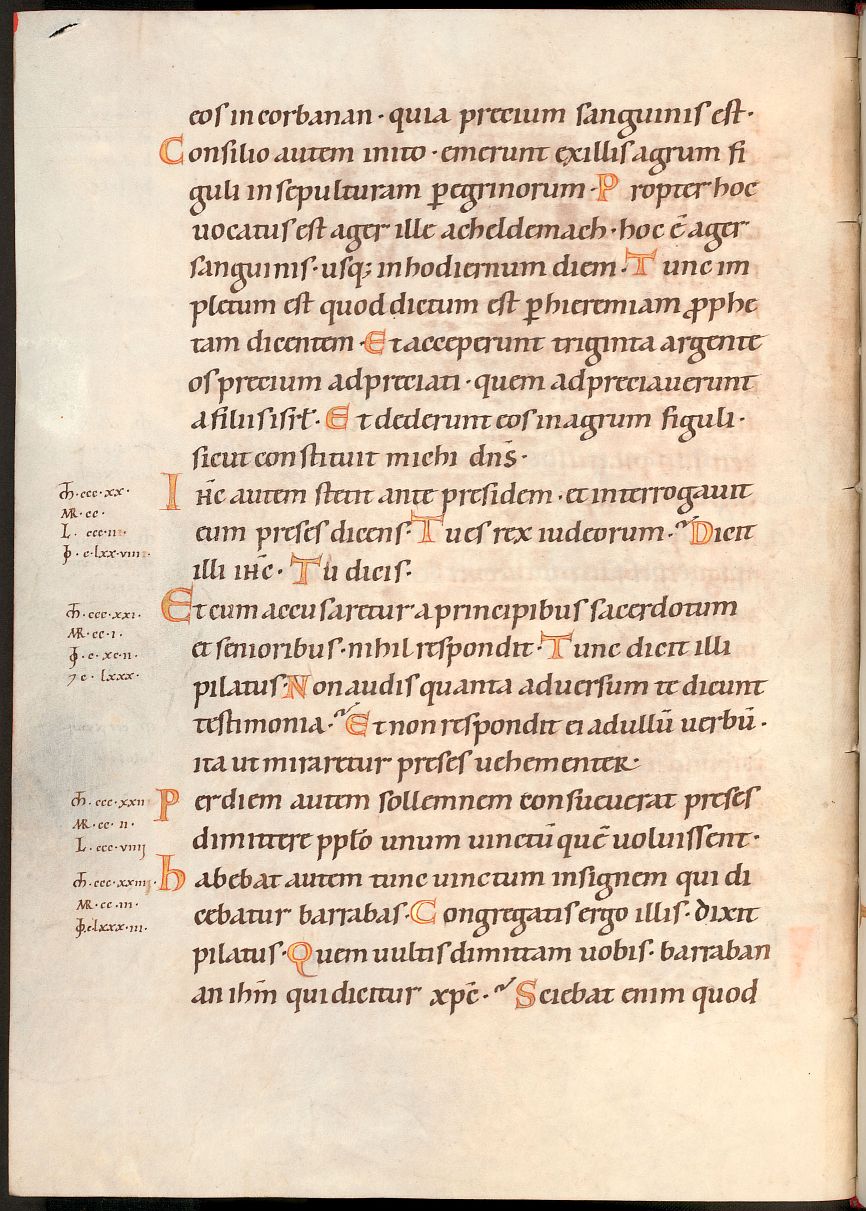 eos in corbanan · quia precium sanguinis est·
Consilio autem inito · emerunt ex illis agrum fi
guli in sepulturam ꝑegrinorum · Propter hoc
uocatus est ager ille acheldemach · hoc ē ager
sanguinis · usq; in hodiernum diem · Tunc im
pletum est quod dictum est ꝑ hieremiam ꝓphe
tam dicentem · Et acceperunt triginta argente
os precium adpreciati · quem adpreciauerunt
a filiis isrł · Et dederunt eos in agrum figuli ·
sicut constituit michi dn̄s ·
ih̄c autem stetit ante presidem · et interrogauit
eum preses dicens · Tu es rex iudeorum · Dicit
illi ih̄c · Tu dicis ·
Et cum accusaretur a principibus sacerdotum
et senioribus · nihil respondit · Tunc dicit illi
pilatus · Non audis quanta aduersum te dicunt
testimonia · Et non respondit ei ad ullū uerbū ·
ita ut miraretur preses uehementer ·
Per diem autem sollemnem consueuerat preses
dimittere ppło unum uinctū quē uoluissent ·
habebat autem tunc uinctum insignem qui di
cebatur barrabas · Congregatis ergo illis · dixit
pilatus · Quem uultis dimittam uobis · barraban
an ihm̄ qui dicitur xpc̄ · Sciebat enim quod
·ccc·xx·
MR·cc·
L· ccc·ii·
·c·lxx·viiii·
·ccc·xxi·
MR·cc·i·
·c·xc·ii·
·lxxx·
·ccc·xxii
MR·cc·ii·
L·ccc·viiii
·ccc·xxiii·
MR·cc·iii·
·c·lxxx·iii·